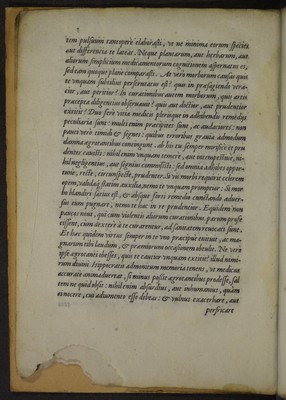 rem pulsuum tantopere elaborasti, ut ne minima eorum species
aut differentia te lateat. Neque plantarum, aut herbarum, aut
aliorum simplicium medicamentorum cognitionem aspernatus es,
sed eam quoque plane comparasti. At vero morborum causas quis
te unquam subtilius perscrutatus est? quis in præsagiendo vera-
cior, aut peritior? In curationibus autem morborum, quis artis
præcepta diligentius observavit? quis aut doctius, aut prudentius
Duo fere vitia medico plerique in adhibendo remedia
peculiaria sunt: multi enim præcipites sunt, ac audaciores: non
pauci vero timidi & segnes: quibus erroribus gravia admodum
damna ægrotantibus contingunt. ab his tu semper mirifice et pru-
denter cavisti: nihil enim unquam temere, aut
hil negligenter, aut segniter commisisti: sed omnia adhibes oppor-
tune, recte, circumspecte, prudenter. Si vis morbi requirit celerem
opem, validaque statim auxilia, nemo te unquam promptior: Si mor
bo blandiri satius est, & absque forti remedio cunctando adver-
sus eum pugnare, nemo te hac in re prudentior. Equidem non
paucos novi, qui cum violentis aliorum curationibus parum profe
cissent, cum dextere à te curarentur, ad sanitatem revocati sunt.
Ex hoc quidem virtus semper in te una præcipue enituit, ac ma-
gnarum tibi laudum, & præmiorum occasionem obtulit. Ne vero
ipse ægrotanti obesses, quis te cautior unquam extitit? illud nimi-
rum divini Hippocratis admonitum memoria tenens, ut medicus
accurate animadvertat, si minus possit ægrotantibus prodesse, sal
tem ne quid obsit: nihil enim absurdius, aut inhumanius, quàm
ei nocere, cui adiumento esse debeas: & vulnus exacerbare, aut
perfricare